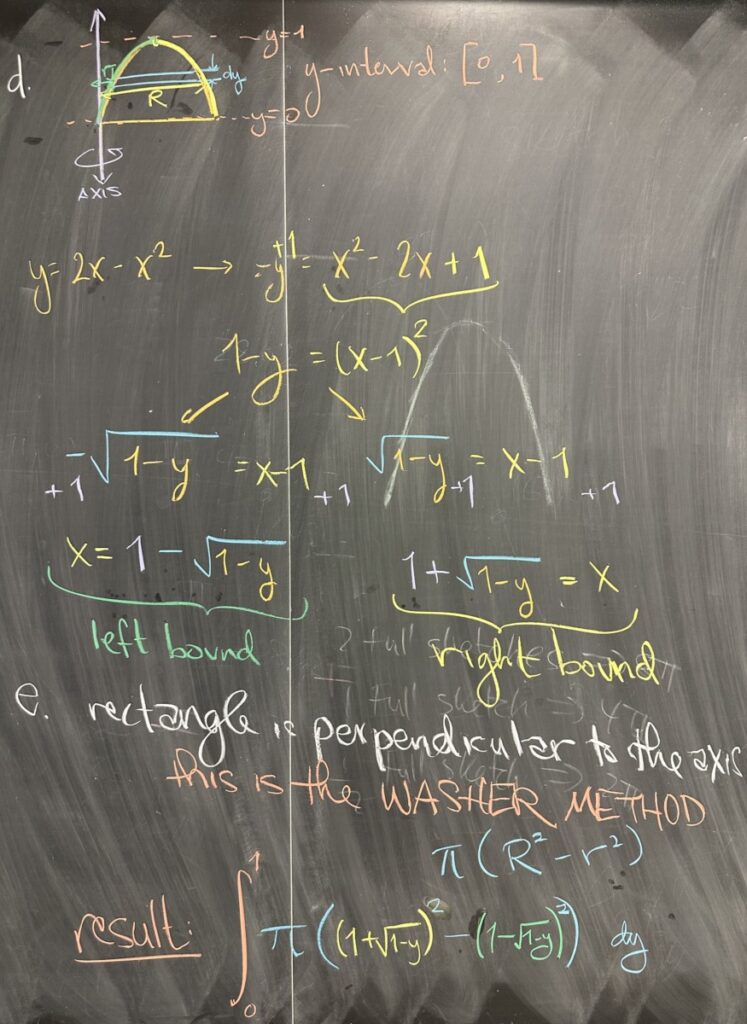 d.
y=1
r
dy
R
y-interval: [0,1]
y=0
AXIS
y = 2x - x² → -y+1 = x² - 2x + 1
1-y = (x-1)²
+1 -√(1-y) = x-1 +1
√(1-y) +1 = x-1 +1
x = 1 - √(1-y)
1 + √(1-y) = x
left bound
right bound
e. rectangle is perpendicular to the axis
this is the WASHER METHOD
π(R²-r²)
result: ∫₀¹ π((1+√(1-y))² - (1-√(1-y))²) dy